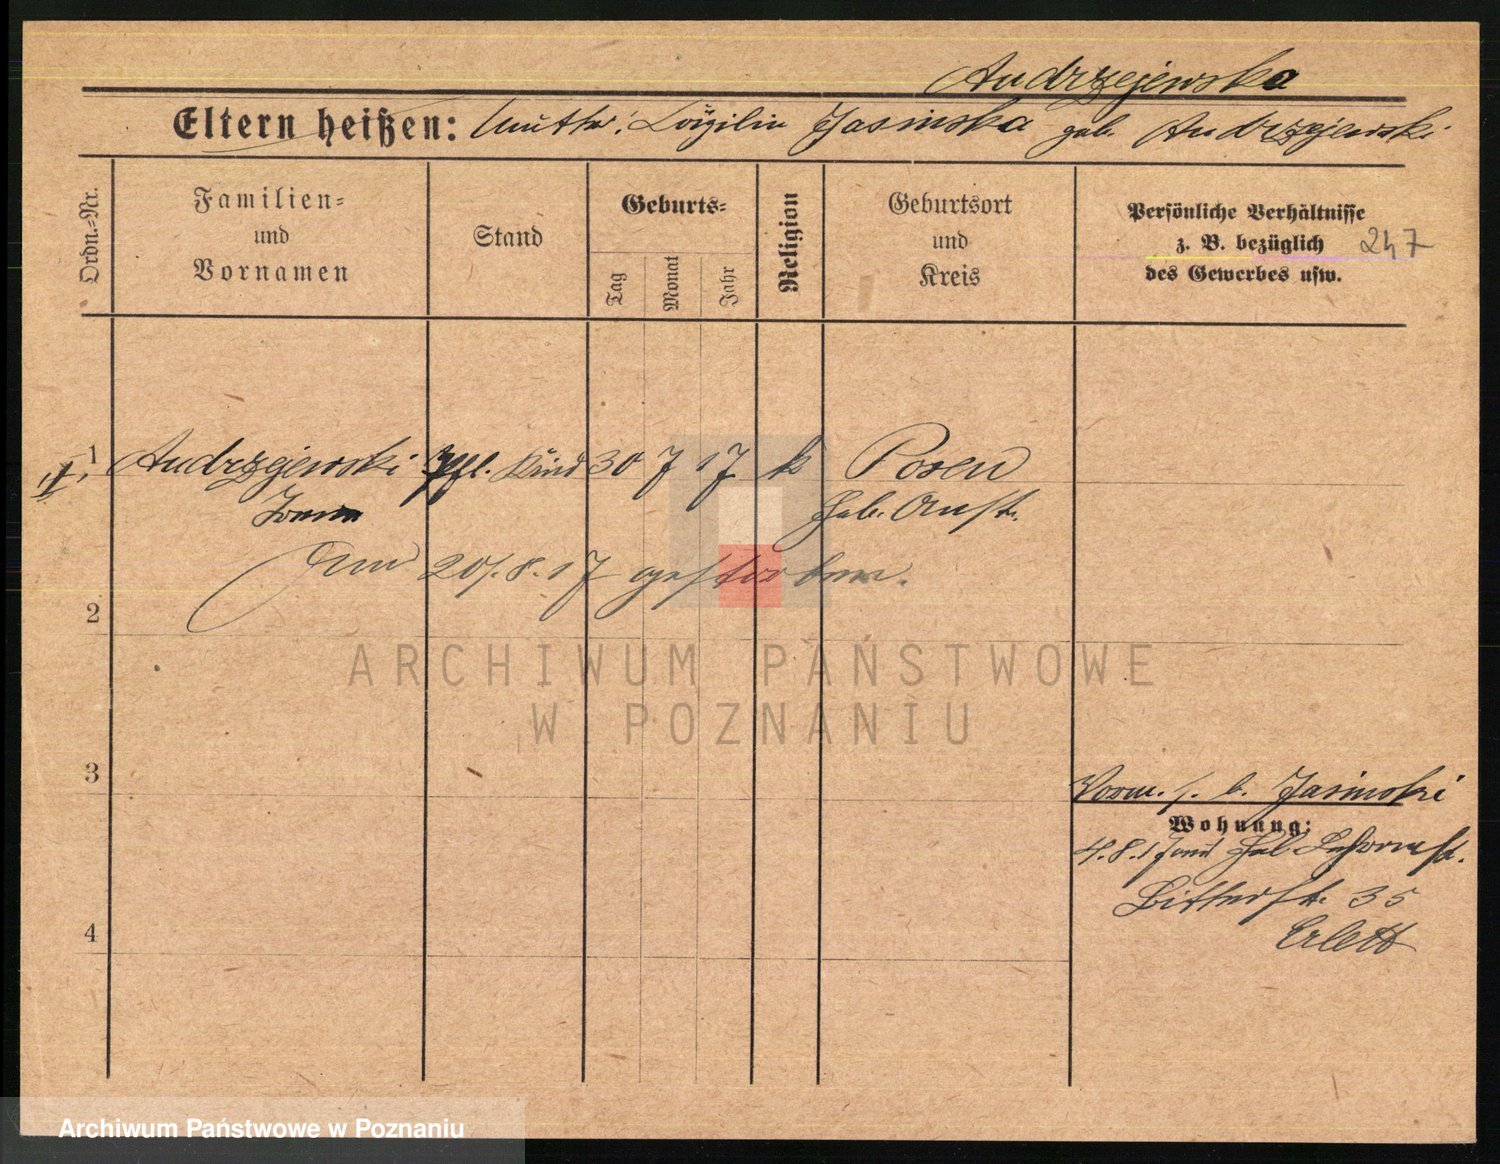 Andrzejewska
Eltern heißen: Mutter: Jasinska geb. Andrzejewski
Ordn.-Nr.
Familien-
und
Vornamen
Stand
Geburts-
Tag
Monat
Jahr
Religion
Geburtsort
und
Kreis
Persönliche Verhältnisse
z. B. bezüglich
des Gewerbes usw.
247
1 Andrzejewski Kind 30 7 17 k Posen
20.8.17 gestorben.
2
3
Jasinski
Wohnung:
4.8.17
Bitterstr. 35
4
ARCHIWUM PAŃSTWOWE
W POZNANIU
Archiwum Państwowe w Poznaniu